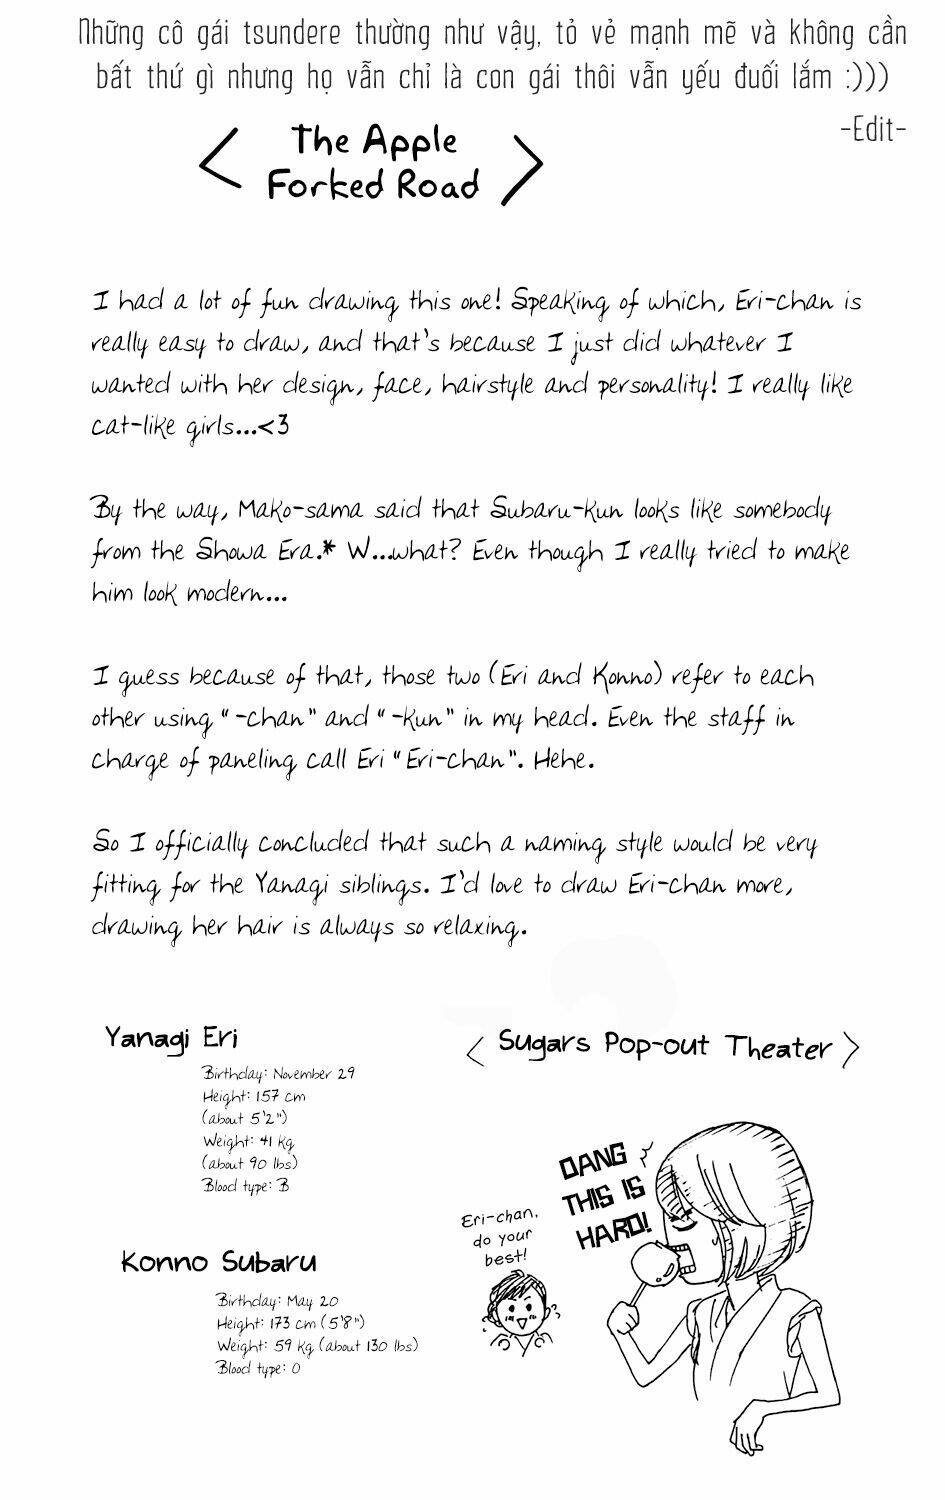 Những cô gái tsundere thường như vậy, tỏ vẻ mạnh mẽ và không cần
bất thứ gì nhưng họ vẫn chỉ là con gái thôi vẫn yếu đuối lắm :)))
-Edit-
< The Apple
Forked Road >
I had a lot of fun drawing this one! Speaking of which, Eri-chan is
really easy to draw, and that's because I just did whatever I
wanted with her design, face, hairstyle and personality! I really like
cat-like girls...<3
By the way, Mako-sama said that Subaru-kun looks like somebody
from the Showa Era.* W...what? Even though I really tried to make
him look modern...
I guess because of that, those two (Eri and Konno) refer to each
other using "-chan" and "-kun" in my head. Even the staff in
charge of paneling call Eri "Eri-chan". Hehe.
So I officially concluded that such a naming style would be very
fitting for the Yanagi siblings. I'd love to draw Eri-chan more,
drawing her hair is always so relaxing.
Yanagi Eri
Birthday: November 29
Height: 157 cm
(about 5'2")
Weight: 41 kg
(about 90 lbs)
Blood type: B
Konno Subaru
Birthday: May 20
Height: 173 cm (5'8")
Weight: 59 kg (about 130 lbs)
Blood type: O
< Sugars Pop-out Theater >
DANG
THIS IS
HARD!
Eri-chan,
do your
best!